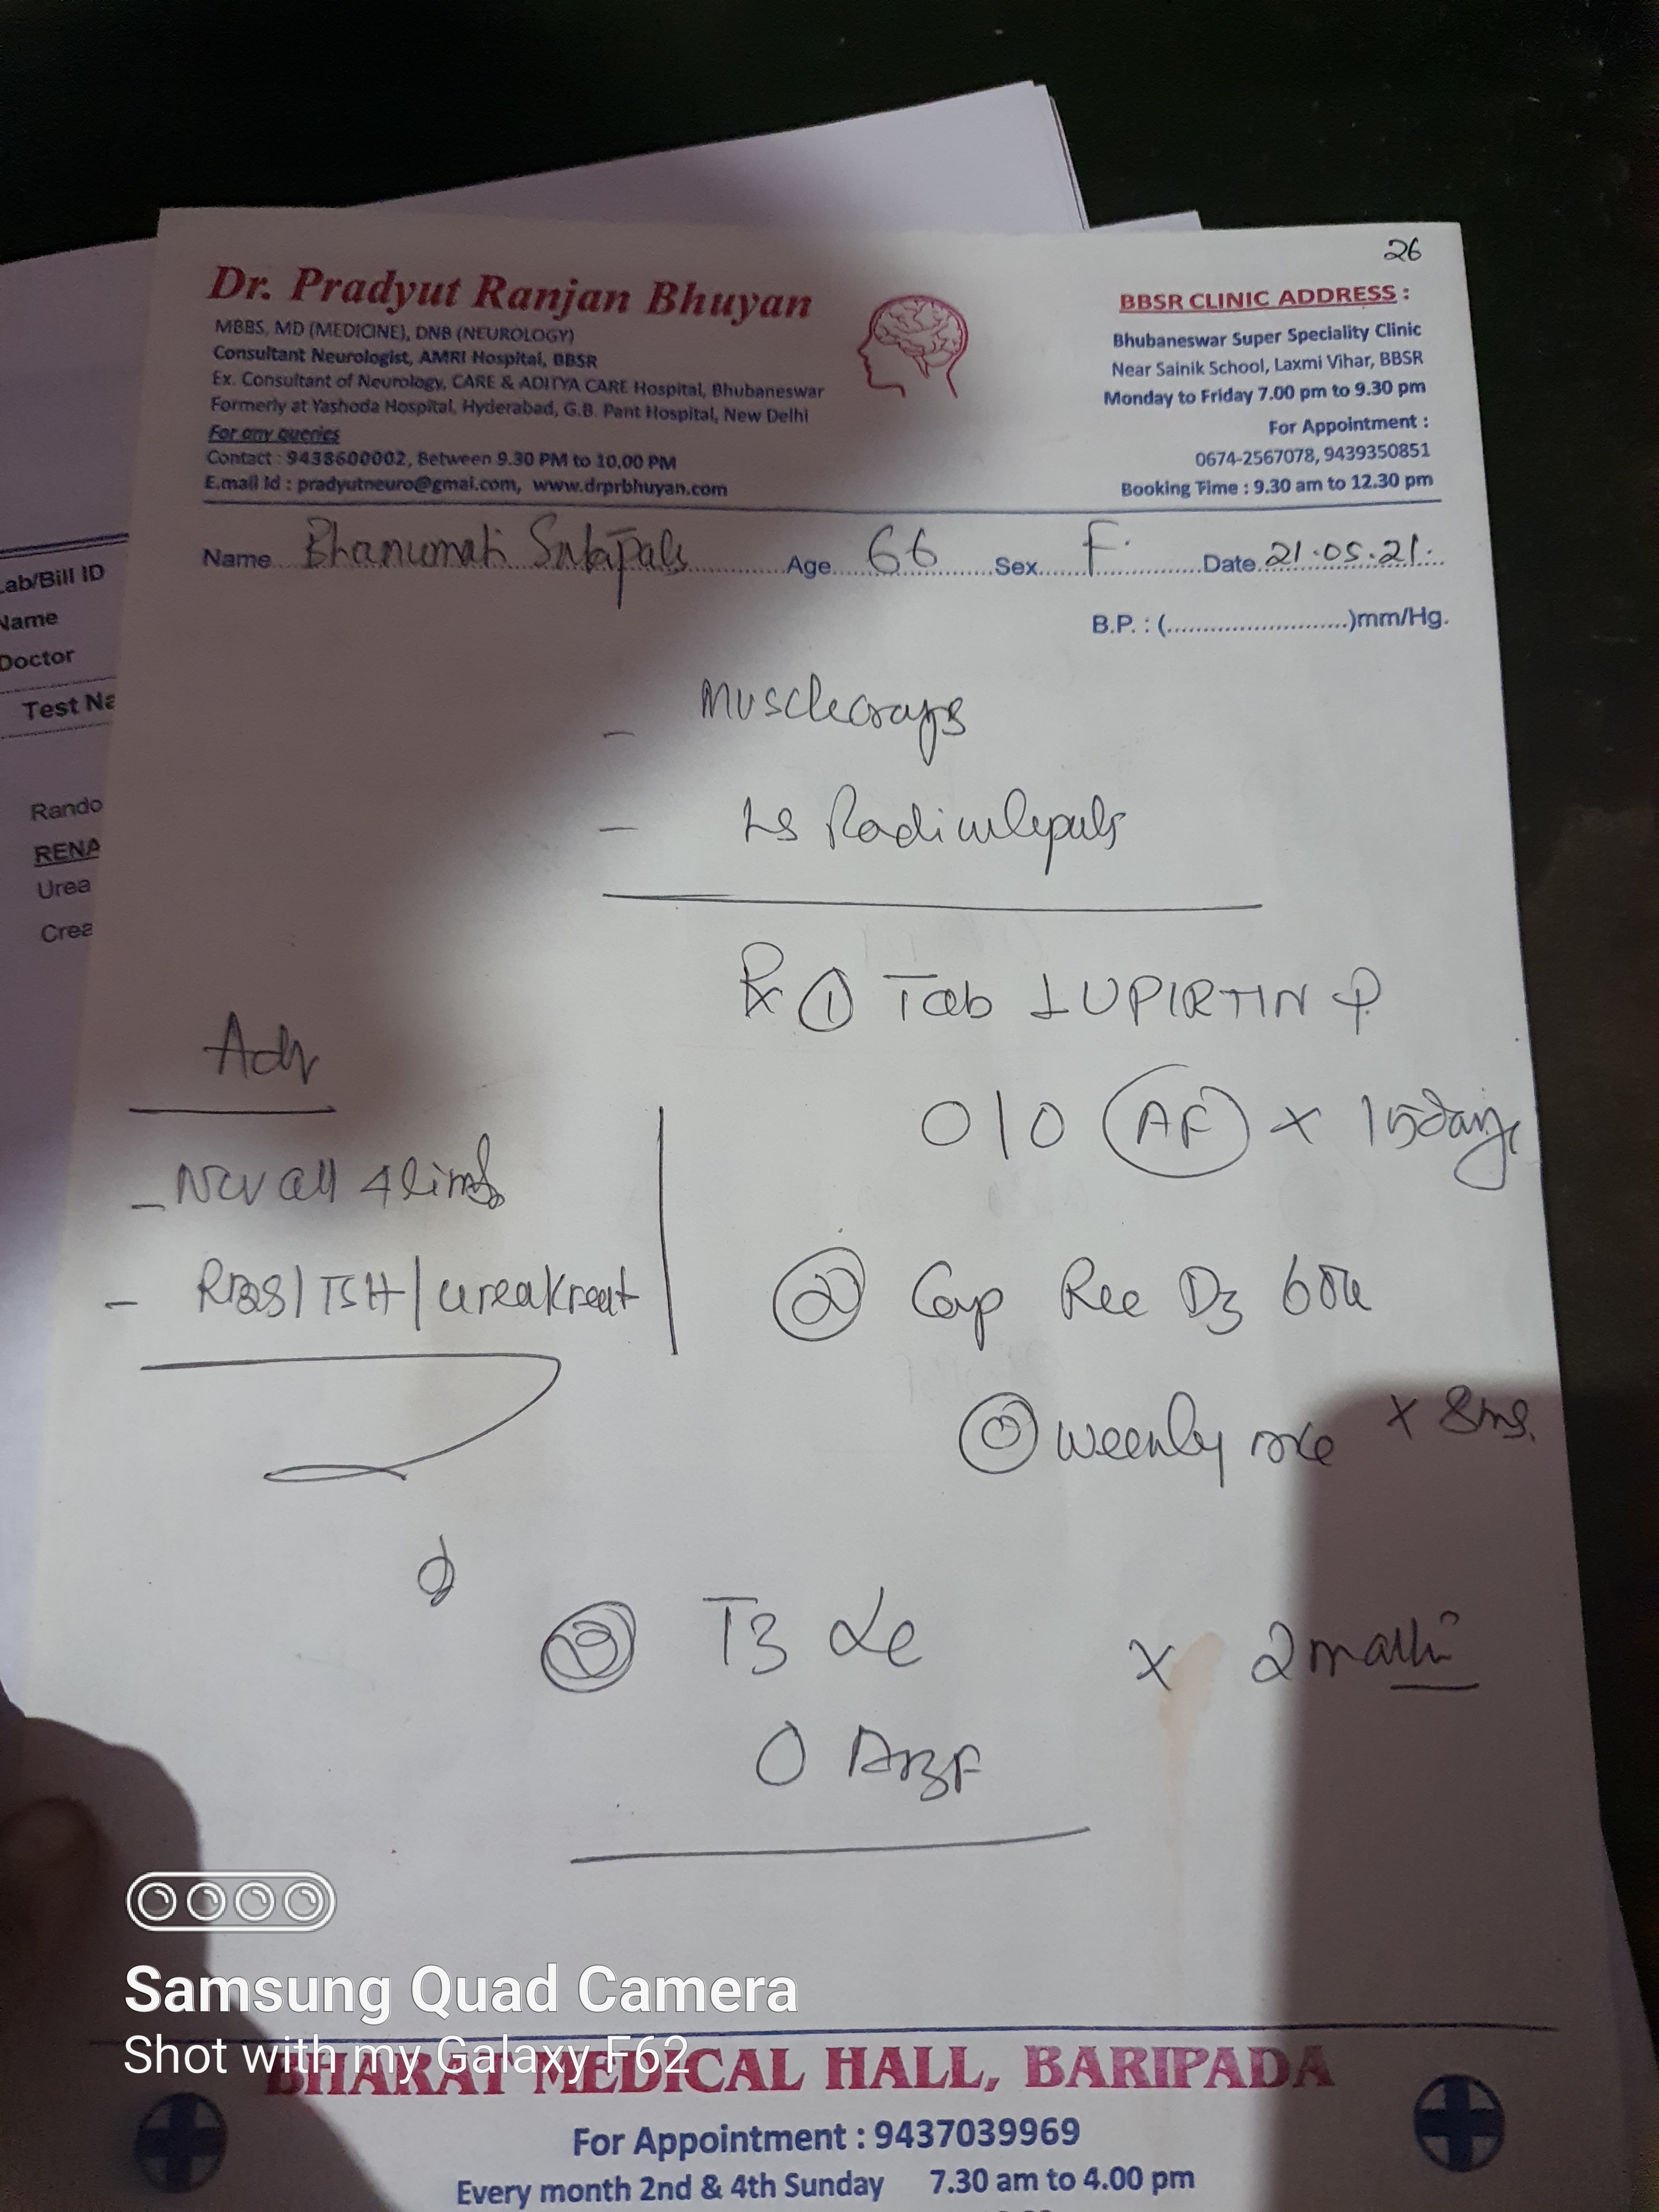 26
Dr. Pradyut Ranjan Bhuyan
MBBS, MD (MEDICINE), DNB (NEUROLOGY)
Consultant Neurologist, AMRI Hospital, BBSR
Ex. Consultant of Neurology, CARE & ADITYA CARE Hospital, Bhubaneswar
Formerly at Yashoda Hospital, Hyderabad, G.B. Pant Hospital, New Delhi
For any queries
Contact : 9438600002, Between 9.30 PM to 10.00 PM
E.mail Id : pradyutneuro@gmai.com, www.drprbhuyan.com
BBSR CLINIC ADDRESS :
Bhubaneswar Super Speciality Clinic
Near Sainik School, Laxmi Vihar, BBSR
Monday to Friday 7.00 pm to 9.30 pm
For Appointment :
0674-2567078, 9439350851
Booking Time : 9.30 am to 12.30 pm
Name Bhanumati Age 66 Sex F. Date 21.05.21.
B.P. : (..........................)mm/Hg.
Lab/Bill ID
Name
Doctor
Test Na
Rando
RENA
Urea
Crea
-
- LS
Rx ① Tab LUPIRTIN P
0/0 AF x 15 days
Adv
- NCV all 4 limb
- RBS/TSH/urea/creat
② Cap D3 60k
weekly x
③ x 2
0
Samsung Quad Camera
Shot with my Galaxy F62
BHARAT MEDICAL HALL, BARIPADA
For Appointment : 9437039969
Every month 2nd & 4th Sunday 7.30 am to 4.00 pm